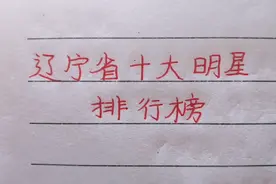 辽宁省十大明星
排行榜